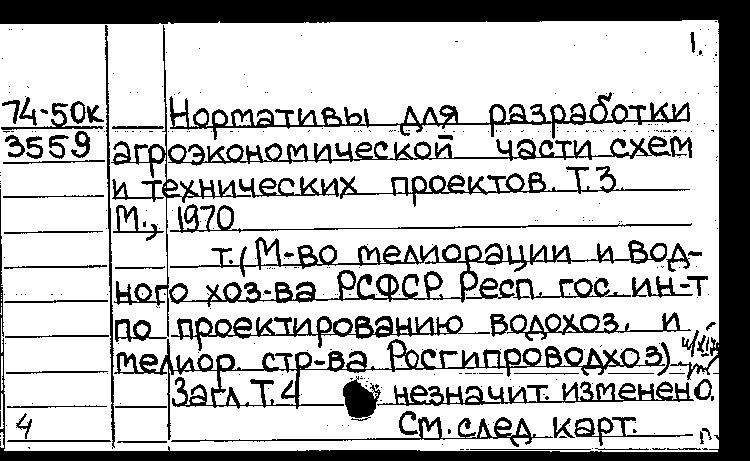 1.
74-50к Нормативы для разработки
3559 агроэкономической части схем
и технических проектов. Т.3.
М., 1970.
т. (М-во мелиорации и вод-
ного хоз-ва РСФСР. Респ. гос. ин-т
по проектированию водохоз. и
мелиор. стр-ва. Росгипроводхоз).
Загл. Т.4 незначит. изменено.
4 См. след. карт.